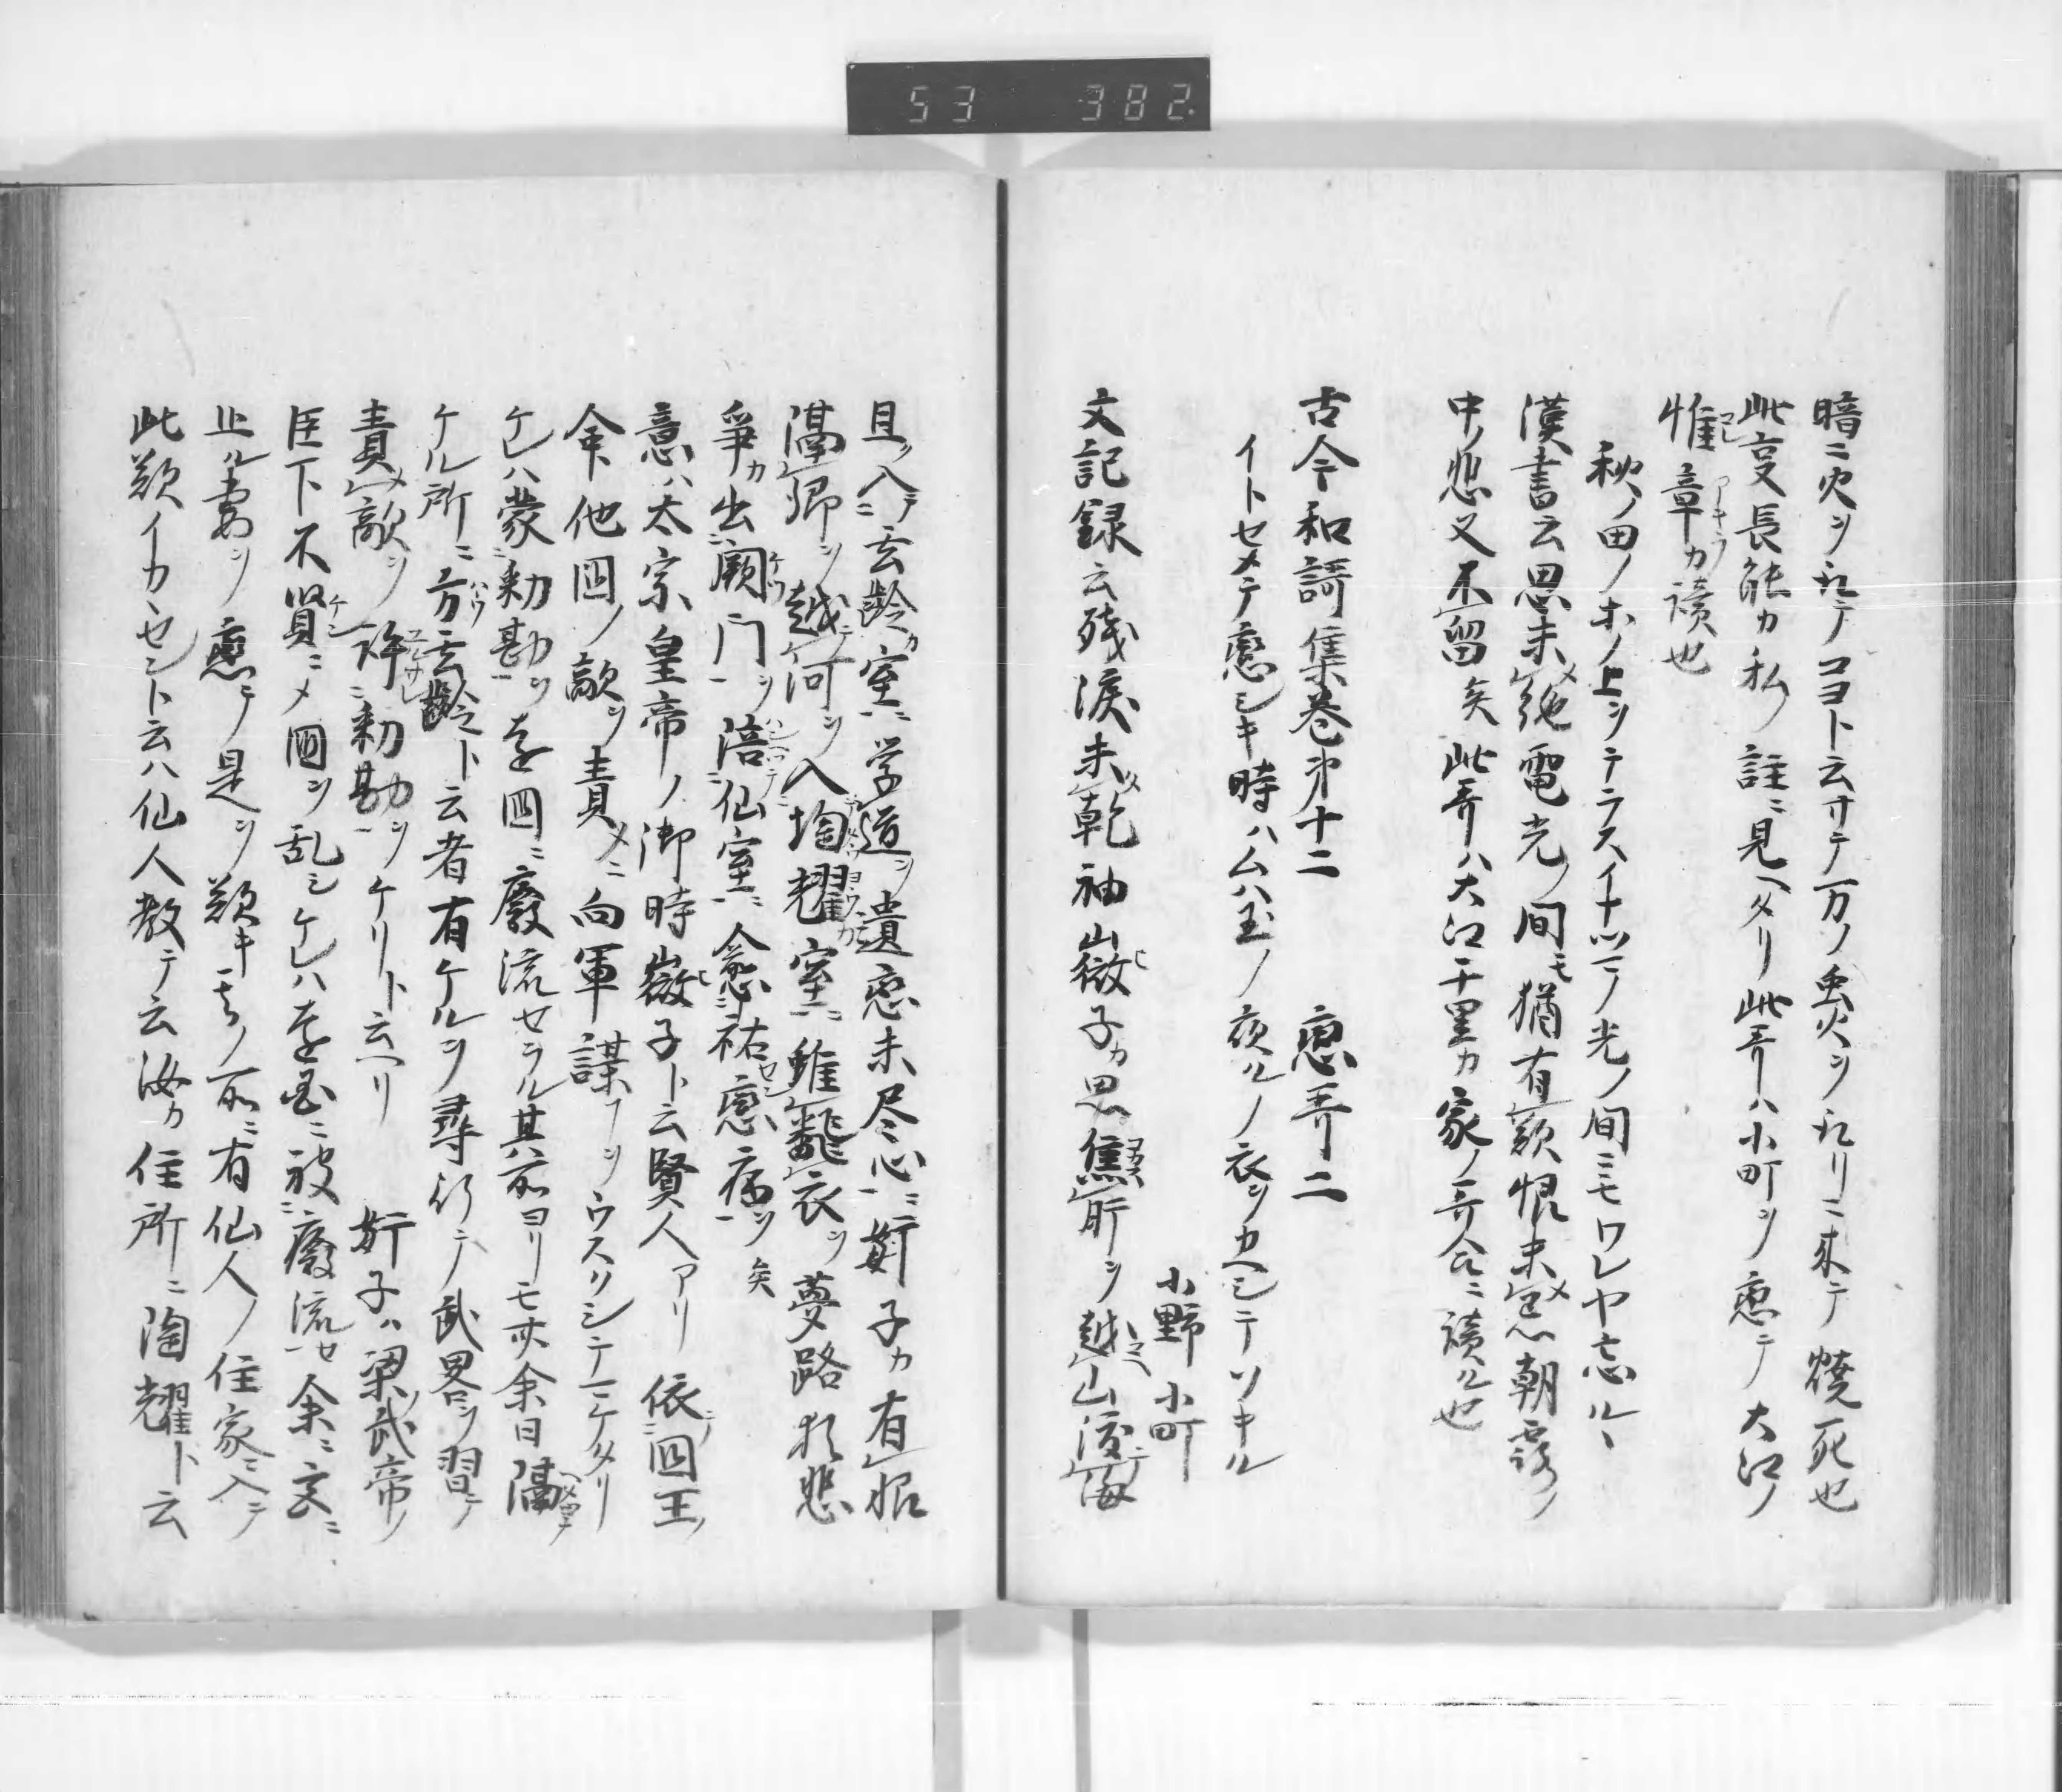 53 382
暗ニ火ヲトモシテコヨト云サテ万ノ虫火ヲトリニ来テ焼死也
此事長能カ私ノ註ニ見ヘタリ此哥ハ小町ヲ恋テ大江ノ
惟章カ読也
秋ノ田ノホノ上ヲテラスイナツマノ光ノ間ニモワレヤ忘ルヽ
漢書云思未絶電光ノ間モ猶有歎恨未忘朝露ノ
中ノ悲又不留矣此哥ハ大江千里カ家ノ哥合ニ読ル也
古今和謌集巻第十二 恋哥二
イトセメテ恋シキ時ハムハ玉ノ夜ルノ衣ヲカヘシテソキル
小野小町
文記録云残涙未乾袖嶶子カ思焦肝ヲ越山渡海
且入玄齢カ室ニ学道ヲ遺恋未尽心ニ奸子カ有恨
隔郷ヲ越河ヲ入陶耀カ室ニ雖飜衣ヲ夢路於悲
争カ出厥門ヲ涪仙室ニ愈祐恋病ヲ矣
意ハ太宗皇帝ノ御時嶶子ト云賢人アリ依国王ノ
命他国ノ敵ヲ責メニ向軍謀コトヲウスリシテマケタリ
ケレハ蒙勅勘ヲ遠国ニ廢流セラル其所ヨリモ亦余日隔
ケル所ニ方玄齢ト云者有ケルヲ尋行テ武略ヲ習テ
責敵ヲ許勅勘ヲケリト云ヘリ 奸子ハ梁武帝ノ
臣下不賢ニメ国ヲ乱シケレハ遠島ニ被廢流せ余ニ京ニ
止ル妻ヲ恋テ是ヲ歎キ其ノ所ニ有仙人ノ住家ニ入テ
此歎イカヽセント云ハ仙人教テ云汝カ住所ニ陶耀ト云